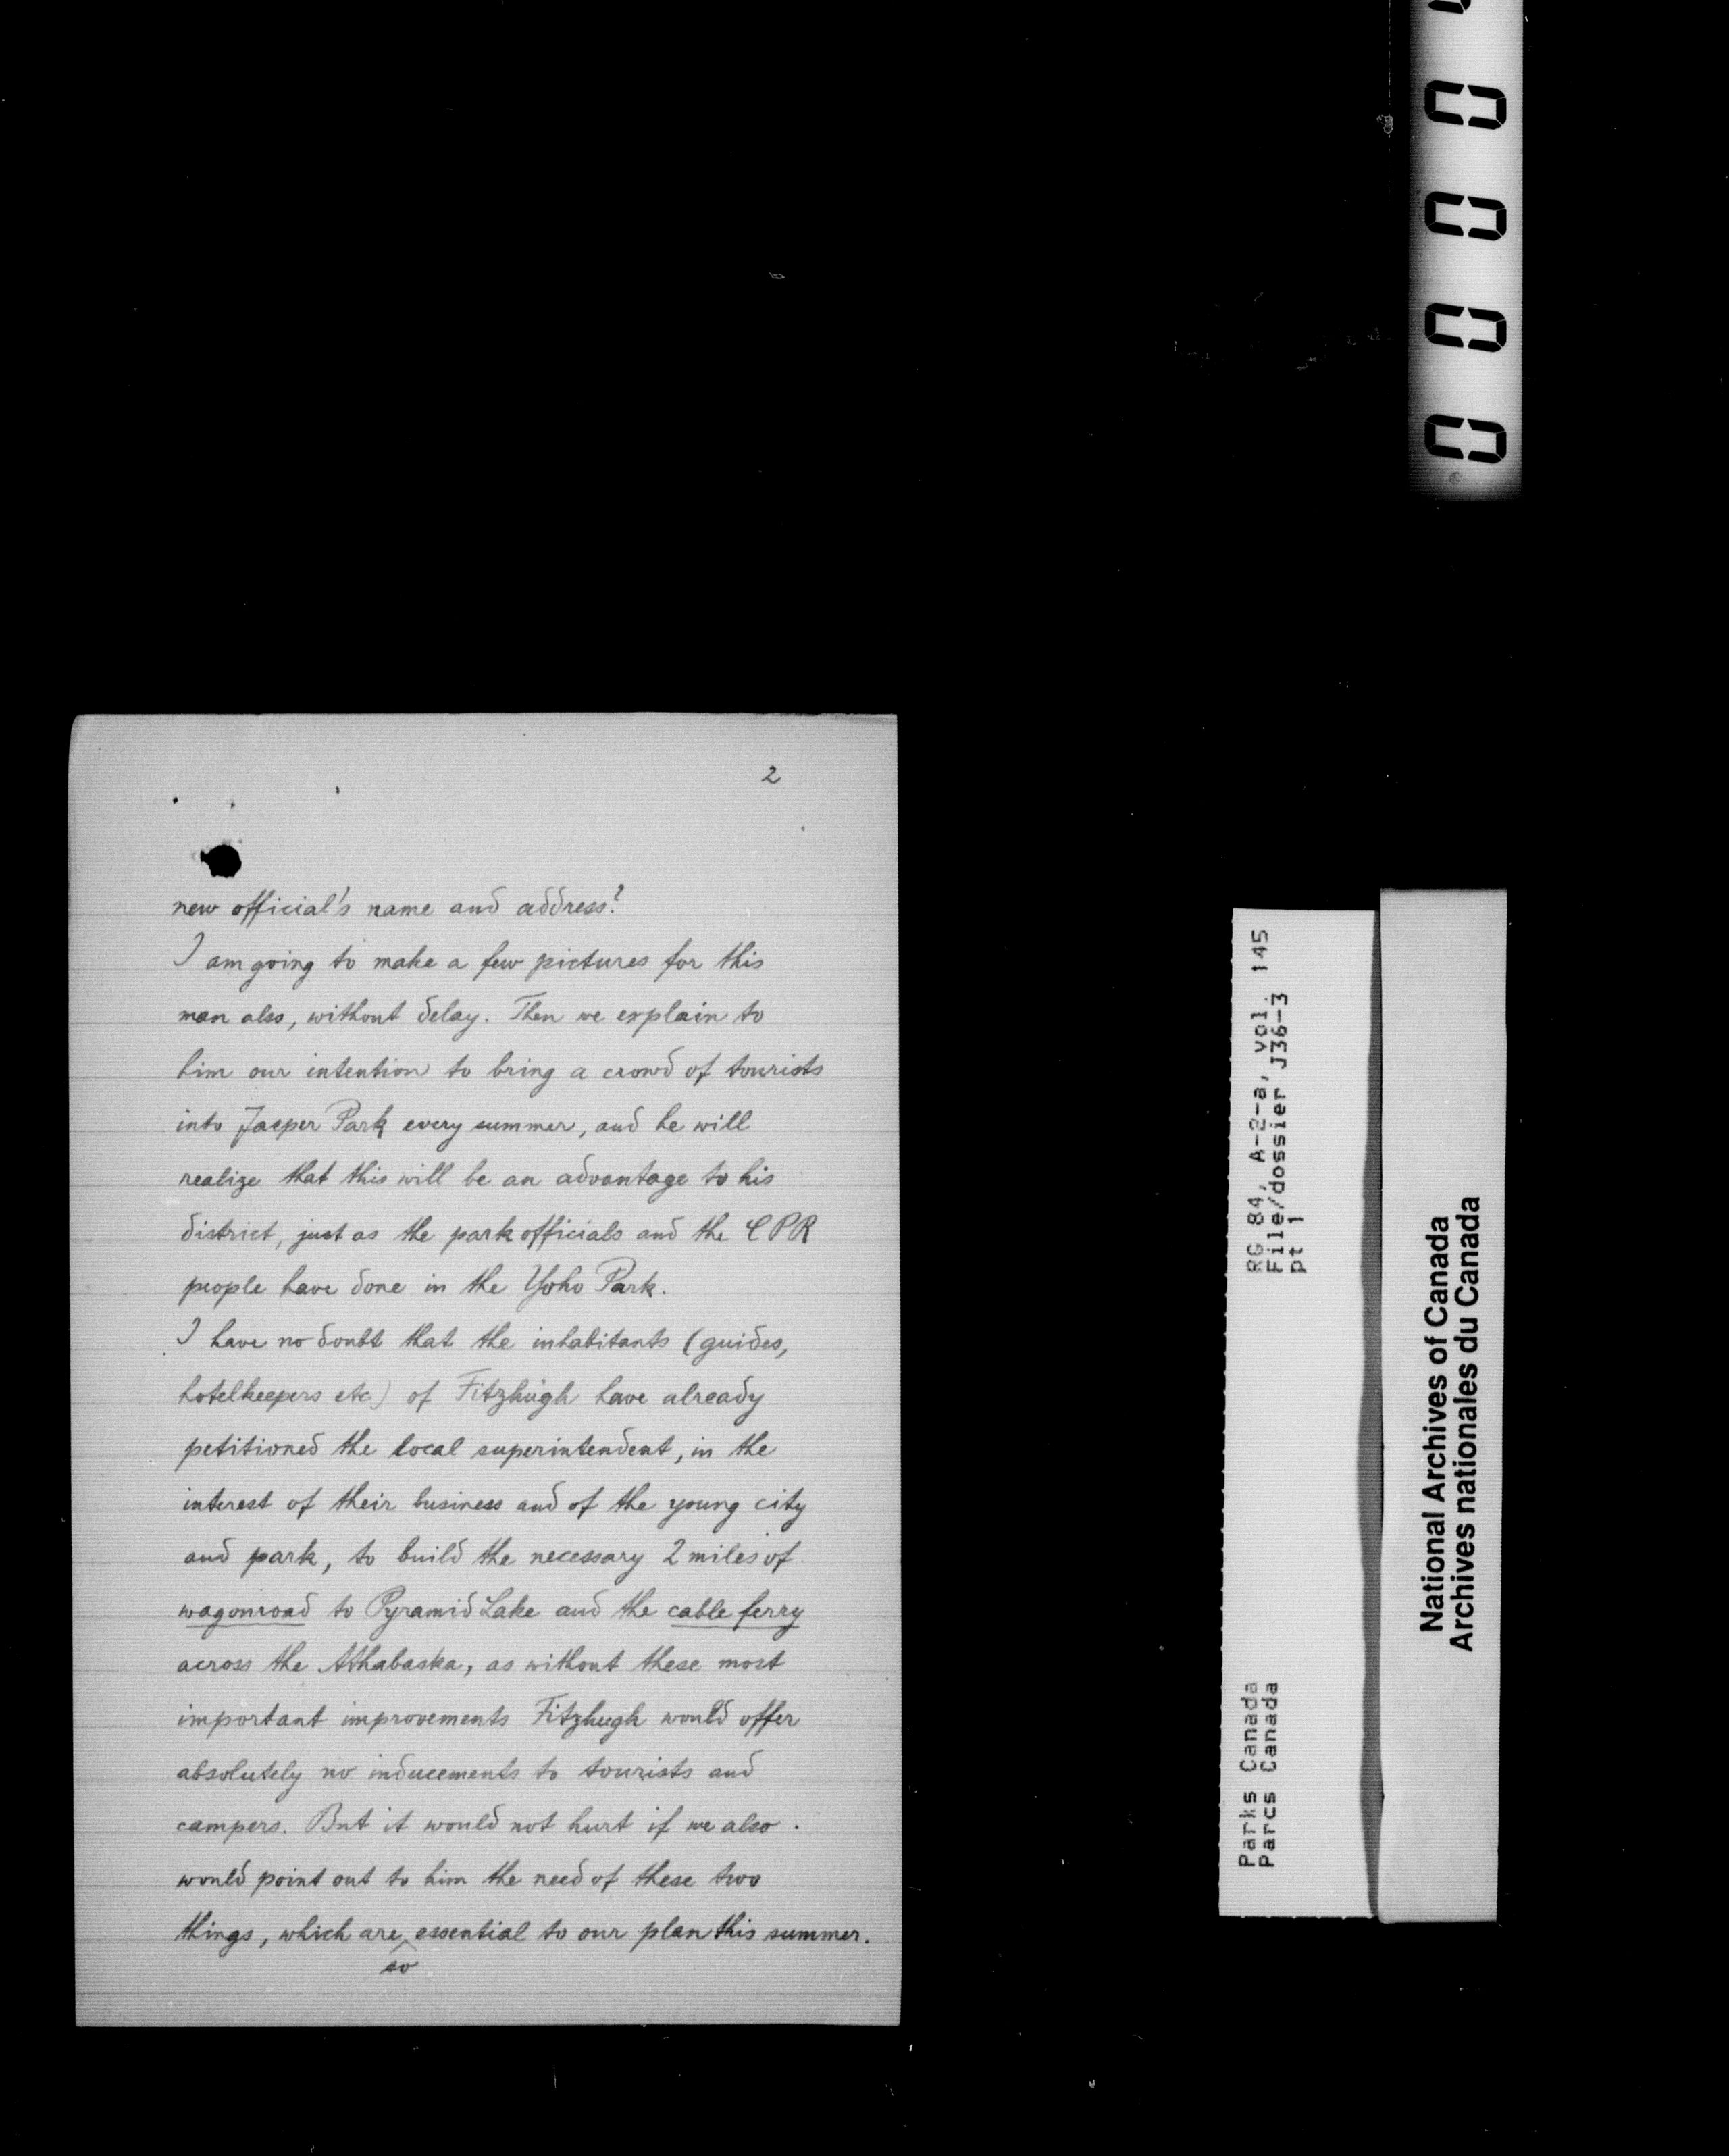 2
new official's name and address?
I am going to make a few pictures for this
man also, without delay. Then we explain to
him our intention to bring a crowd of tourists
into Jasper Park every summer, and he will
realize that this will be an advantage to his
district, just as the park officials and the CPR
people have done in the Yoho Park.
I have no doubt that the inhabitants (guides,
hotelkeepers etc.) of Fitzhugh have already
petitioned the local superintendent, in the
interest of their business and of the young city
and park, to build the necessary 2 miles of
wagonroad to Pyramid Lake and the cable ferry
across the Athabaska, as without these most
important improvements Fitzhugh would offer
absolutely no inducements to tourists and
campers. But it would not hurt if we also
would point out to him the need of these two
things, which are so essential to our plan this summer.
0 0 0 0
RG 84, A-2-a, vol. 145
File/dossier J36-3
pt 1
Parks Canada
Parcs Canada
National Archives of Canada
Archives nationales du Canada